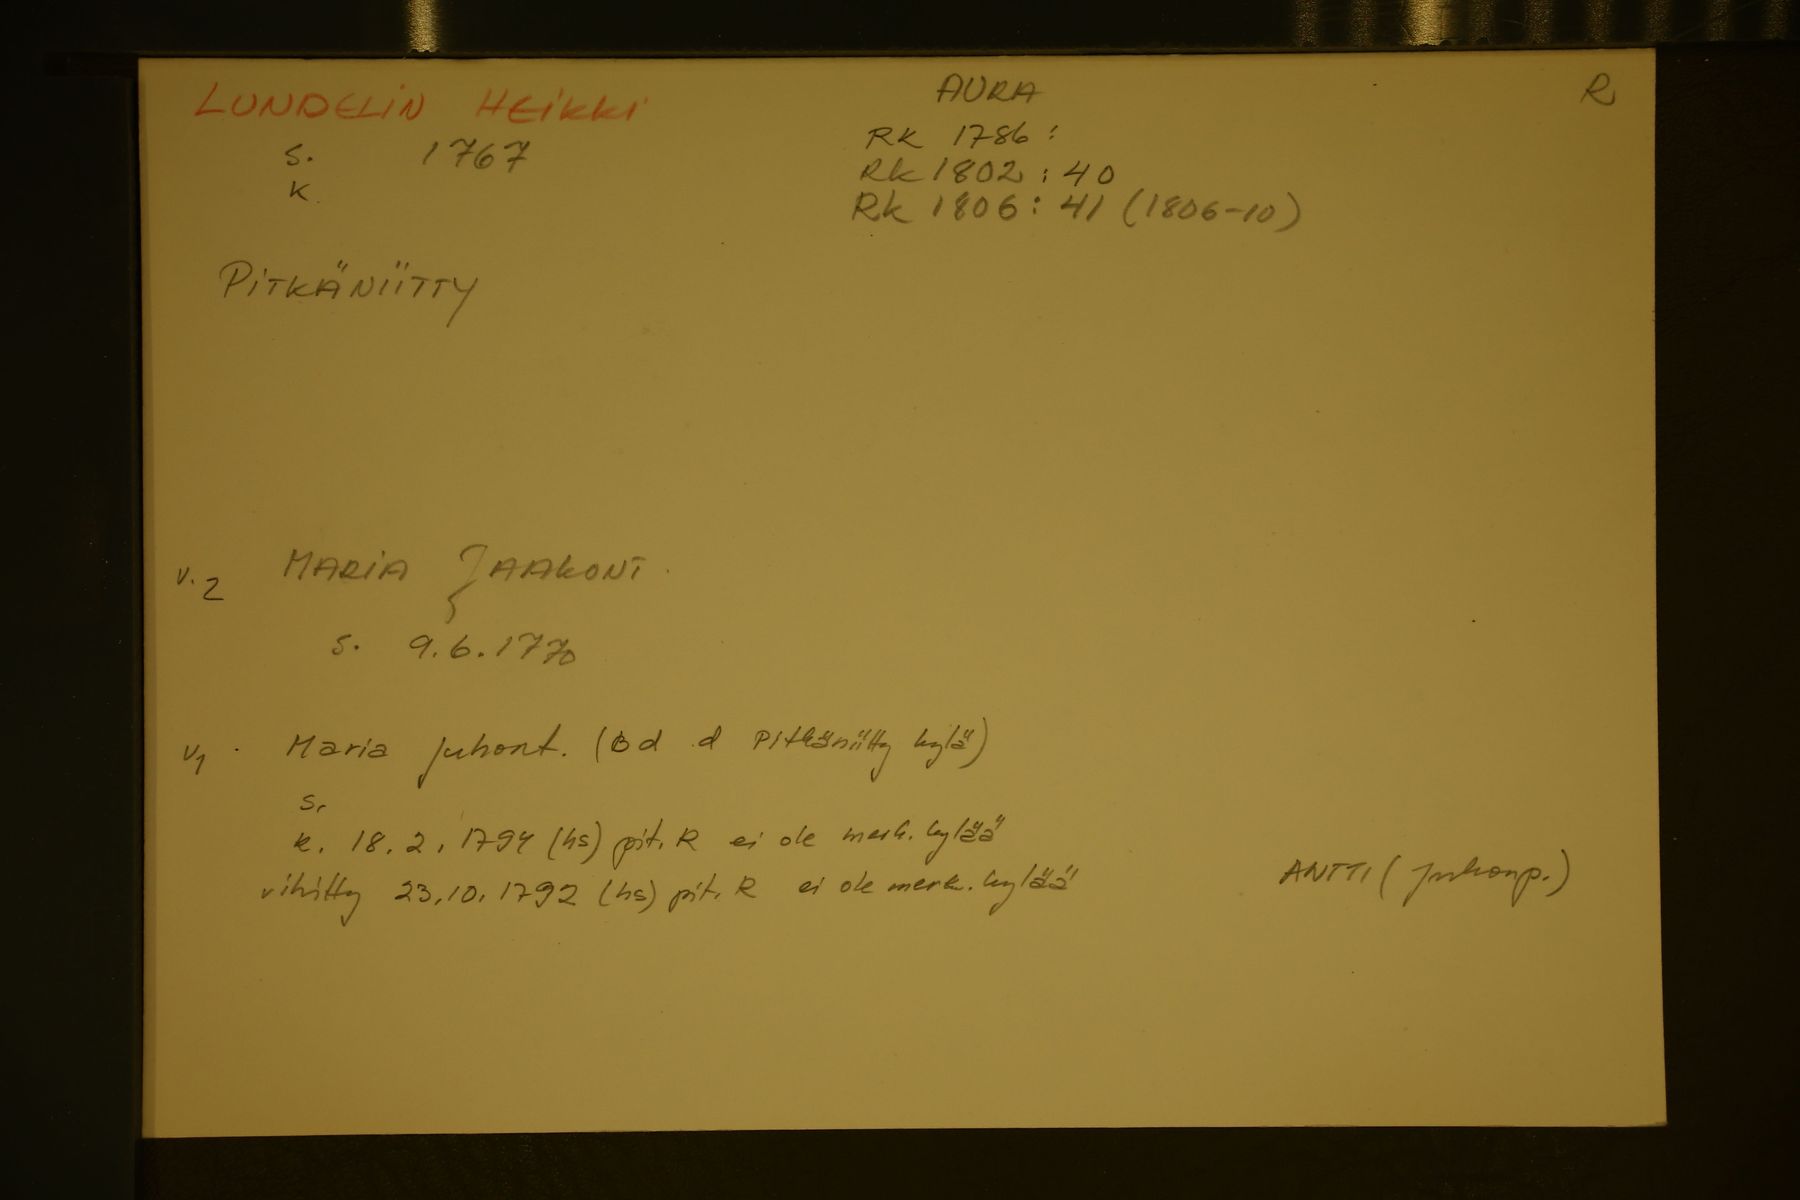 LUNDELIN HEIKKI
S. 1767
K.
AURA
RK 1786:
Rk 1802: 40
Rk 1806: 41 (1806-10)
R
PITKÄNIITTY
v.2 MARIA JAAKONT.
S. 9.6.1770
v1. Maria Juhont. (Bd d Pitkäniitty kylä)
s.
k. 18.2.1794 (hs) pit. R ei ole merk. kylää
vihitty 23.10.1792 (hs) pit. R ei ole merk. kylää
ANTTI (Juhonp.)